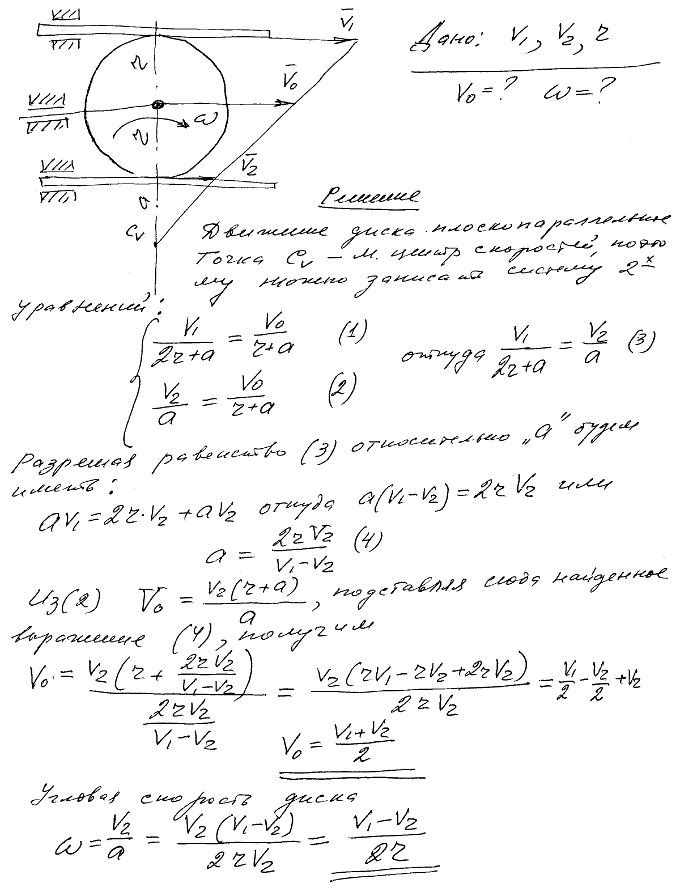 V̅₁
Дано: V₁, V₂, r
r
V̅₀
V₀ = ? ω = ?
ω
r
V̅₂
a
Cᵥ
Решение
Движение диска плоскопараллельное
Точка Cᵥ – м. центр скоростей, поэто
му можно записать систему 2ˣ
уравнений:
V₁/(2r+a) = V₀/(r+a) (1)
откуда V₁/(2r+a) = V₂/a (3)
V₂/a = V₀/(r+a) (2)
Разрешая равенство (3) относительно „a" будем
иметь:
aV₁ = 2r·V₂ + aV₂ откуда a(V₁–V₂) = 2rV₂ или
a = 2rV₂/(V₁–V₂) (4)
Из (2) V₀ = V₂(r+a)/a, подставляя сюда найденное
выражение (4), получим
V₀ = V₂(r + 2rV₂/(V₁–V₂))/(2rV₂/(V₁–V₂)) = V₂(rV₁–rV₂+2rV₂)/(2rV₂) = V₁/2 – V₂/2 + V₂
V₀ = (V₁+V₂)/2
Угловая скорость диска
ω = V₂/a = V₂(V₁–V₂)/(2rV₂) = (V₁–V₂)/(2r)